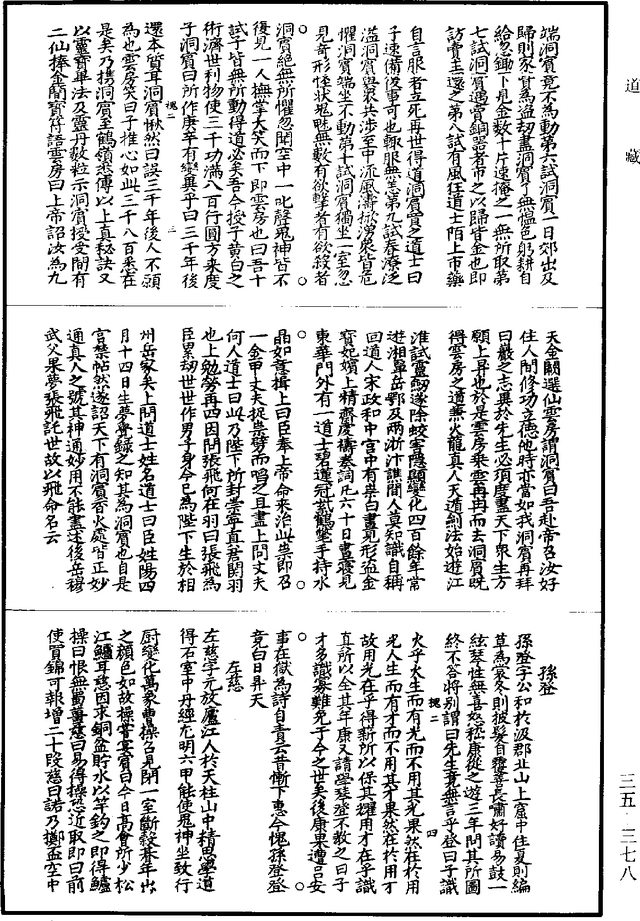 道藏
端洞賓竟不為動第六試洞賓一日郊出及
歸則家貲為盜劫盡洞賓了無慍色躬耕自
給忽鋤下見金數十片速掩之一無所取第
七試洞賓遇賣銅器者市之以歸皆金也即
訪賣主還之第八試有風狂道士陌上市藥
自言服者立死再世得道洞賓買之道士曰
子速備後事可也輒服無恙第九試春潦泛
溢洞賓與衆共涉至中流風濤掀湧衆皆危
懼洞賓端坐不動第十試洞賓獨坐一室忽
見奇形怪狀鬼魅無數有欲擊者有欲殺者
洞賓絕無所懼忽聞空中一叱聲鬼神皆不
復見一人撫掌大笑而下即雲房也曰吾十
試子皆無所動得道必矣吾今授子黄白之
術濟世利物使三千功滿八百行圓方來度
子洞賓曰所作庚辛有變異乎曰三千年後
還本質耳洞賓愀然曰誤三千年後人不願
為也雲房笑曰子推心如此三千八百悉在
是矣乃携洞賓至鶴嶺悉傳以上真秘訣又
以靈寶畢法及靈丹數粒示洞賓授受間有
二仙捧金簡寶符語雲房曰上帝詔汝為九
天金闕選仙雲房謂洞賓曰吾赴帝召汝好
住人間修功立德他時亦當如我洞賓再拜
曰巖之志異於先生必須度盡天下衆生方
願上昇也於是雲房乗雲冉冉而去洞賓既
得雲房之道兼火龍真人天遁劍法始遊江
淮試靈劒遂除蛟害隱顯變化四百餘年常
遊湘單岳鄂及兩浙汴譙間人莫知識自稱
回道人宋政和中宫中有祟白晝見形盜金
寶妃嬪上精齋虔禱奏詞凡六十日晝寢見
東華門外有一道士碧蓮冠紫鶴氅手持水
晶如意揖上曰臣奉上帝命來治此祟即召
一金甲丈夫捉祟劈而啗之且盡上問丈夫
何人道士曰此乃陛下所封崇寧真君關羽
也上勉勞再四因問張飛何在羽曰張飛為
臣累劫世世作男子身今已為陛下生於相
州岳家矣上問道士姓名道士曰臣姓陽四
月十四日生夢覺録之知其為洞賓也自是
宫禁帖然遂詔天下有洞賓香火處皆正妙
通真人之號其神通妙用不能盡述後岳穆
武父果夢張飛託世故以飛命名云
孫登
孫登字公和於汲郡北山上窟中住夏則編
草為裳冬則披髮自覆善長嘯好讀易鼓一
絃琴性無喜怒嵇康從之遊三年問其所圖
終不答將別謂曰先生竟無言乎登曰子識
火乎火生而有光而不用其光果然在於用
光人生而有才而不用其才果然在於用才
故用光在乎得薪所以保其耀用才在乎識
真所以全其年康又請學琴登不教之曰子
才多識寡難免于今之世矣後康果遭吕安
事在獄為詩自責云昔慚下惠今愧孫登登
竟白日昇天
左慈
左慈字元放廬江人於天柱山中精思學道
得石室中丹經尤明六甲能使鬼神坐致行
厨變化萬象曹操召見閉一室斷穀朞年出
之顔色如故操嘗宴賓曰今日高會所少松
江鱸耳慈因求銅盆貯水以竿釣之即得鱸
操曰恨無蜀薑慈曰易得操恐近取即曰前
使買錦可報增二十段慈曰諾乃擲盃空中
三五·三七八